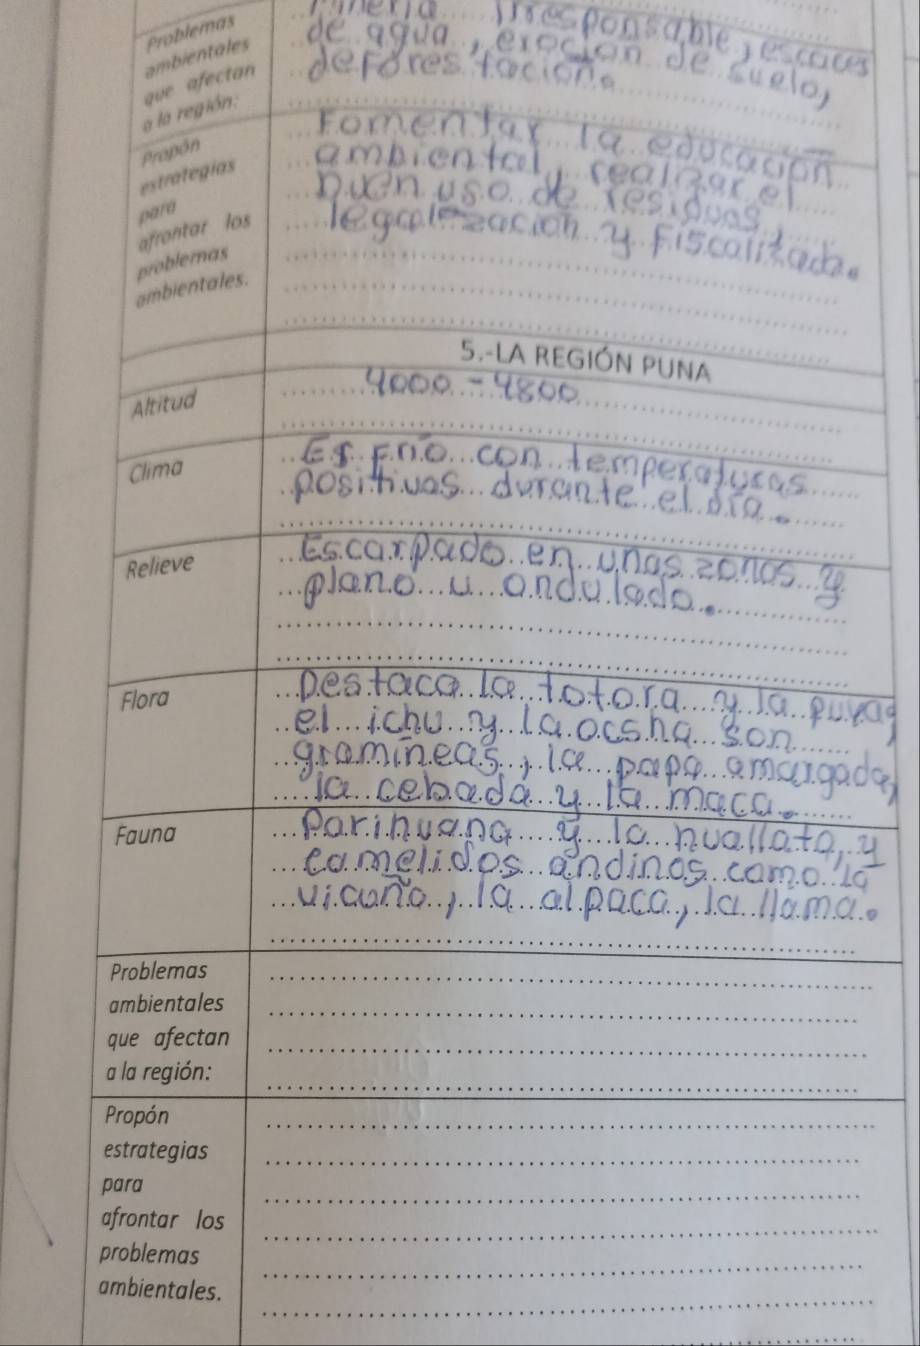 Problemas
ambientales
que afectan
a la región:
minería irresponsable, escaces
de agua, erocion de suelo,
deforestacion.
Propón
estrategias
para
afrontar los
problemas
ambientales.
Fomentar la educación
ambiental, realizar el
buen uso de residuos,
legalezacion y Fiscalizada.
5.-LA REGIÓN PUNA
Altitud
4000 - 4800
Clima
Es Frio con temperaturas
positivas durante el dia.
Relieve
Escarpado en unas zonas y
plano u ondulado.
Flora
Destaca la totora y la puya,
el ichu y la ocsha son
gramíneas, la papa amarga,
la cebada y la maca.
Fauna
Parihuana y la huallata, y
camelidos andinos como la
vicuña, la alpaca, la llama.
Problemas
ambientales
que afectan
a la región:
Propón
estrategias
para
afrontar los
problemas
ambientales.